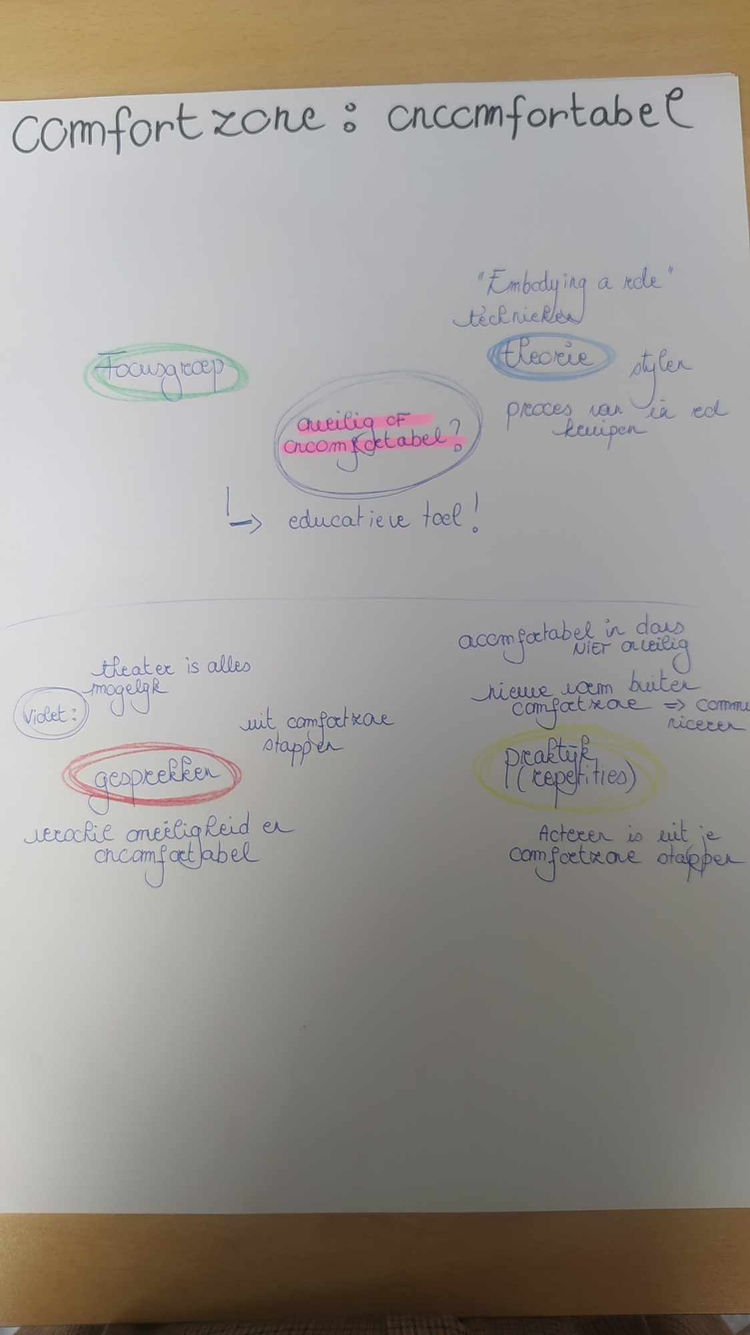 comfortzone : oncomfortabel
"Embodying a role"
technieken
theorie
stylen
proces van in rol
kruipen
Focusgroep
onveilig OF
oncomfortabel?
↳ educatieve tool!
theater is alles
mogelijk
Violet:
uit comfortzone
stappen
gesprekken
verschil onveiligheid en
oncomfortabel
oncomfortabel in dans
NIET onveilig
nieuwe vorm buiten
comfortzone => commu
niceren
praktijk
(repetities)
Acteren is uit je
comfortzone stappen